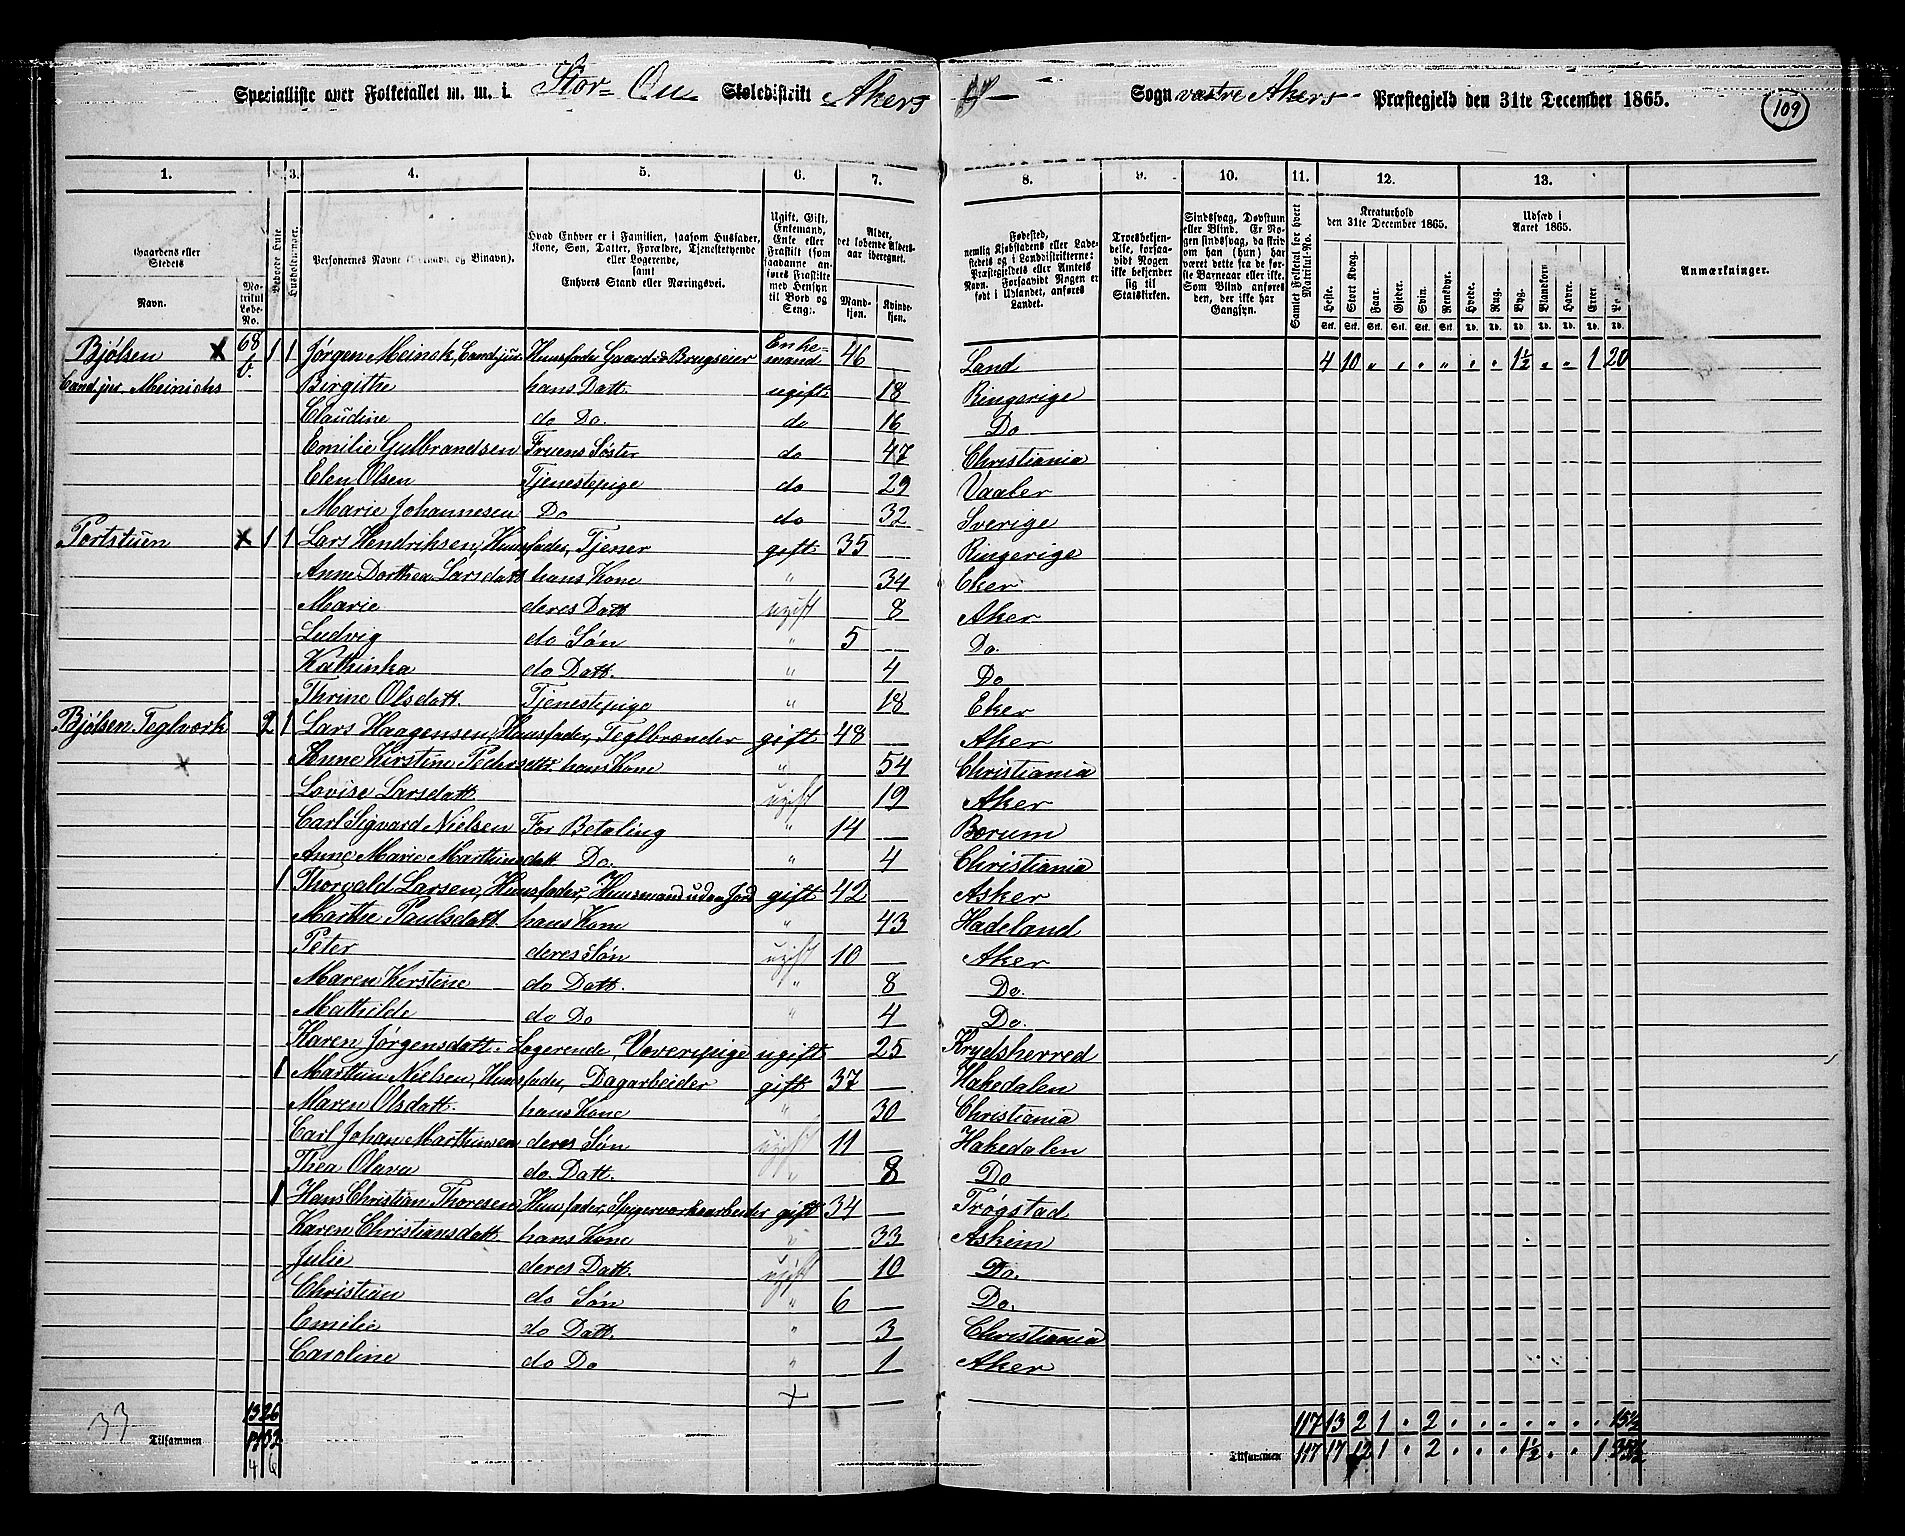 Specialliste over Folketallet m. m. i Stor-Ou Skoledistrikt Akers Sogn vestre Akers Præstegjeld den 31te December 1865.
109
1. 2. 3. 4. 5. 6. 7. 8. 9. 10. 11. 12. 13.
Gaardens eller Stedets Navn. Matrikul Løbe-No. Beboede Huse Husholdninger. Personernes Navne (Fornavn og Binavn). Hvad Enhver er i Familien, saasom Husfader, Kone, Søn, Datter, Forældre, Tjenestetyende eller Logerende, samt Enhvers Stand eller Næringsvei. Ugift, Gift, Enkemand, Enke eller Fraskilt (som saadanne anføres Fraskilte med Hensyn til Bord og Seng). Alder, det løbende Aldersaar iberegnet. Mandkjøn. Kvindekjøn.
Fødested, nemlig Kjøbstadens eller Ladestedets eller i Landdistrikterne: Præstegjeldets eller Amtets Navn. Forsaavidt Nogen er født i Udlandet, anføres Landet. Troesbekjendelse, forsaavidt Nogen ikke bekjender sig til Statskirken. Sindssvag, Døvstum eller Blind. Er Nogen sindssvag, da skriv om han (hun) har været dette fra de første Barneaar eller ikke. Som Blind anføres den, der ikke har Gangsyn. Samlet Folketal for hvert Matrikul-No. Kreaturhold den 31te December 1865. Heste. Stort Kvæg. Faar. Gjeder. Svin. Rensdyr. Udsæd i Aaret 1865. Hvede. Rug. Byg. Blandkorn Havre. Erter. Anmærkninger.
Bjølsen 68 b. 1 1 Jørgen Meinck, Cand jur Huusfader Gaard & Brugseier Enkemand 46 Land 4 10 " " " " " " 1½ " " 1 20
Cand. jur. Meinichs Birgithe hans Datt ugift 18 Ringerige
Claudine do Do. do 16 Do
Emilie Gulbrandsen Fruens Søster do 47 Christiania
Elen Olsen Tjenestepige do 29 Vaaler
Marie Johannesen Do do 32 Sverige
Portstuen 1 1 Lars Hendriksen, Huusfader, Tjener gift 35 Ringerige
Anne Dorthea Larsdatt hans Kone " 34 Eker
Marie deres Datt ugift 8 Aker
Ludvig do Søn " 5 Do.
Kathinka do Datt. " 4 Do
Thrine Olsdatt. Tjenestepige " 18 Eker
Bjølsen Teglværk 2 1 Lars Haagensen, Huusfader, Teglbrænder gift 48 Aker
Anne Kirstine Pedersdtt. hans Kone " 54 Christiania
Lovise Larsdatt ugift 19 Aker
Carl Sigvard Nielsen For Betaling " 14 Bærum
Anne Marie Marthinsdatt Do. " 4 Christiania
1 Thorvald Larsen, Huusfader, Huusmand uden Jord gift 42 Asker
Marthe Paulsdatt. hans Kone " 43 Hadeland
Peter deres Søn ugift 10 Aker
Maren Kerstine do Datt. " 8 Do.
Mathilde do Do " 4 Do.
Karen Jørgensdatt. Logerende, Væverpige ugift 25 Krydsherred
1 Marthin Nielsen, Huusfader, Dagarbeider gift 37 Hakedalen
Maren Olsdatt. hans Kone " 30 Christiania
Carl Johan Marthinsen deres Søn ugift 11 Hakedalen
Thea Olava do. Datt. " 8 Do
1 Hans Christian Thoresen Huusfader, Spigerværksarbeider gift 34 Trøgstad
Karen Christiansdatt. hans Kone " 33 Askim
Julie deres Datt. ugift 10 Do.
Christian do Søn " 6 Do.
Emilie do Datt. " 3 Christiania
Caroline do Do " 1 Aker
13 26 117 13 2 1 " 2 " " " " " " " 15½
33 Tilsammen 32 Tilsammen 117 17 12 1 " 2 " " " 1½ " " 1 35½
4 6